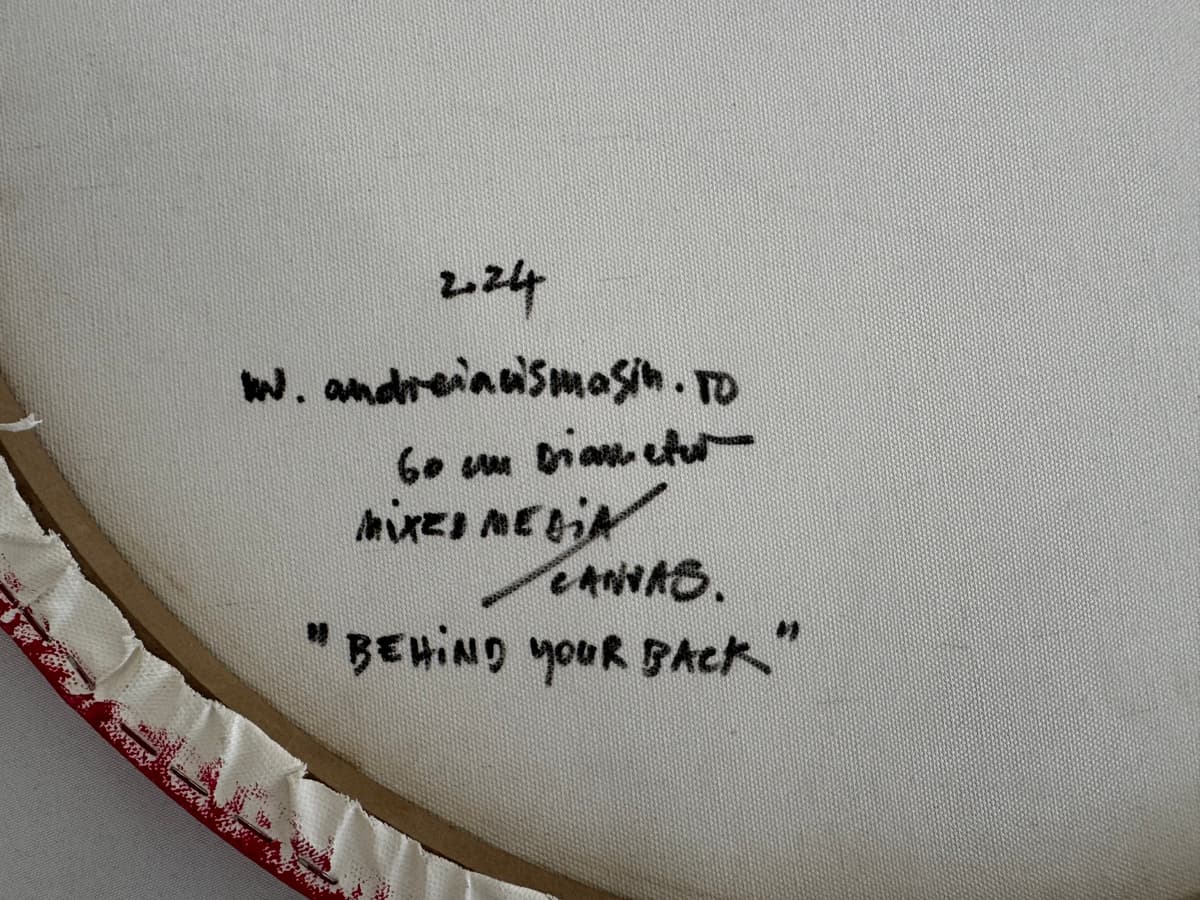 2.24
60 cm Diameter
MiXED MEDiA /
CANVAS.
"BEHiND YOUR BACK"